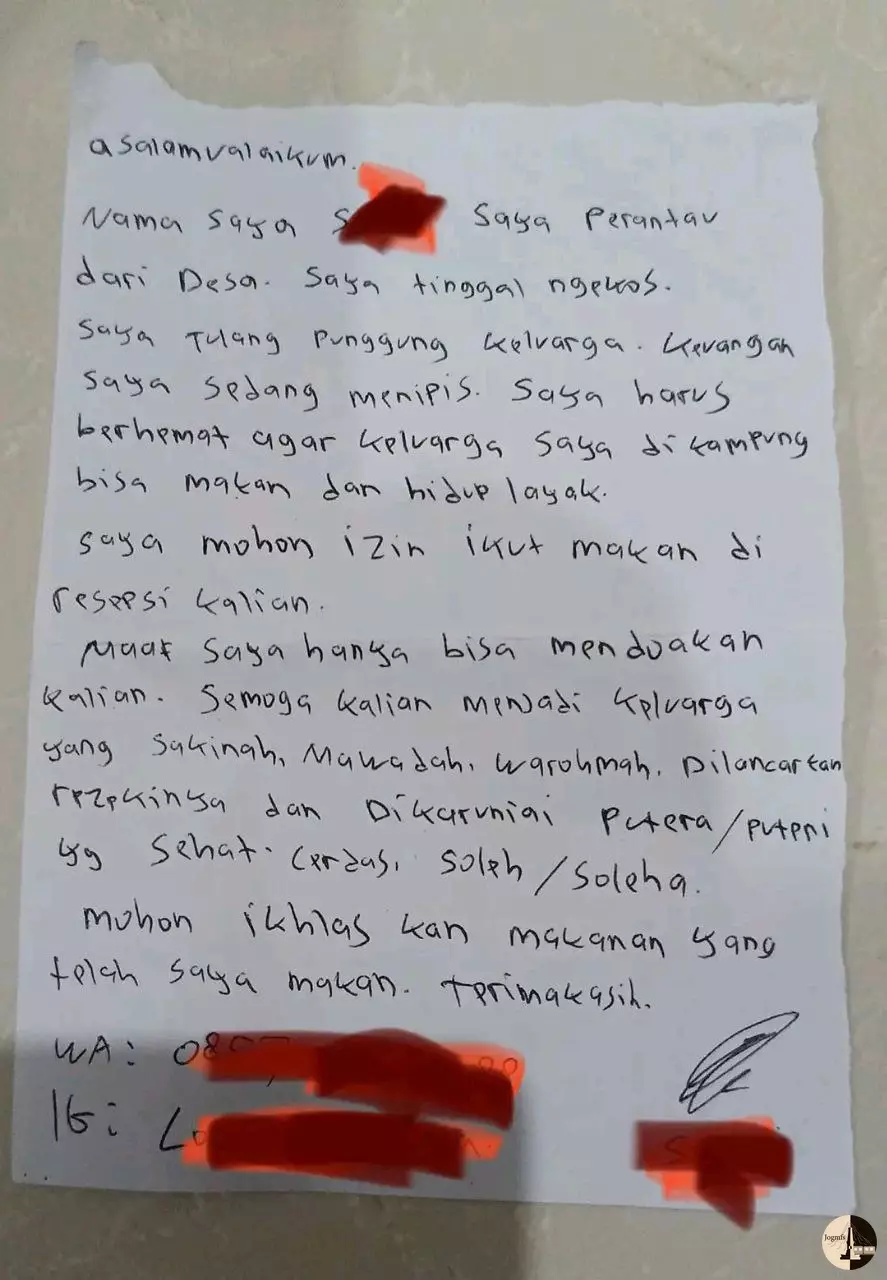 asalamualaikum.
Nama saya S saya Perantau
dari Desa. Saya tinggal ngekos.
Saya Tulang Punggung Keluarga. Keuangan
saya sedang menipis. Saya harus
berhemat agar keluarga saya di kampung
bisa makan dan hidup layak.
saya mohon izin ikut makan di
resepsi kalian.
Maaf saya hanya bisa menduakan
kalian. Semoga kalian menjadi keluarga
yang sakinah, Mawadah, warohmah, Dilancarkan
rezekinya dan Dikaruniai Putera/puteri
yg Sehat. Cerdas, Soleh/Soleha.
mohon ikhlas kan makanan yang
telah saya makan. terimakasih.
WA: 08
IG: L
S
Jogmfs